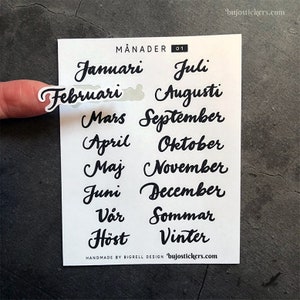 bujostickers.com
MÅNADER 01
Januari Juli
Februari Augusti
Mars September
April Oktober
Maj November
Juni December
Vår Sommar
Höst Vinter
HANDMADE BY BIGRELL DESIGN bujostickers.com